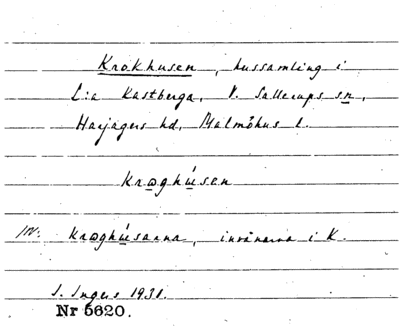 Krokhusen, hussamling i
L:a Kastberga, V. Sallerups sn,
Harjagers hd, Malmöhus l.
krɷghúsen
IN: krɷghúsarna, invånarna i K.
I. Ingers 1931.
Nr 5620.